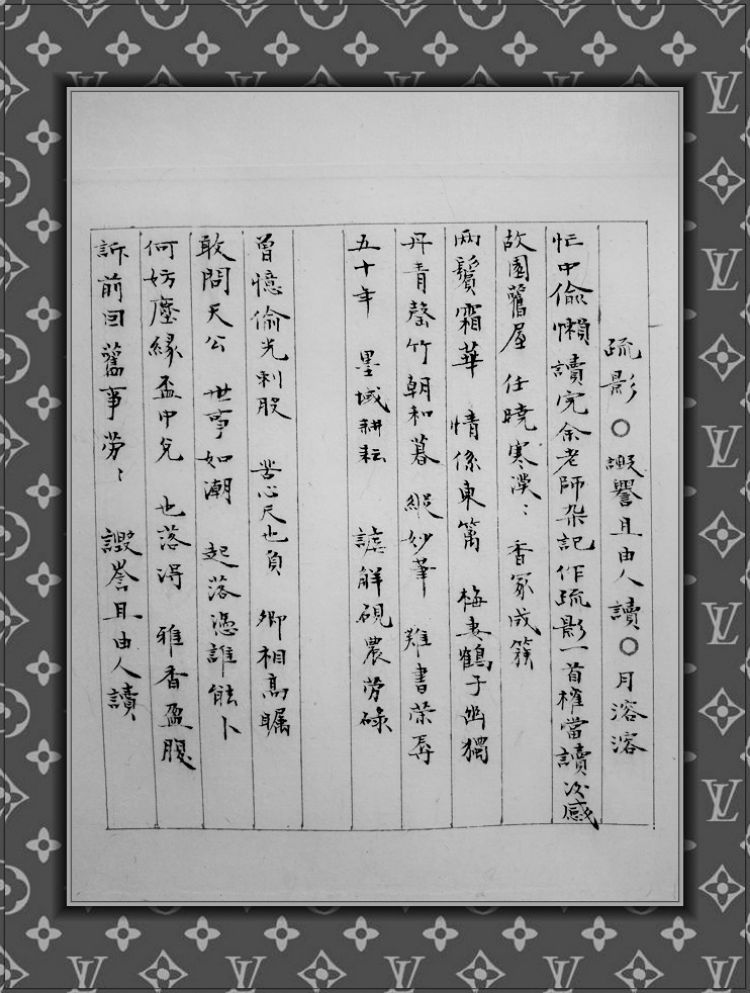 疏影○譭譽且由人讀○月溶溶
忙中偷懶讀完余老師杂記作疏影一首権當讀次感
故園舊屋 任曉寒漠〻 香冢成簇
两鬓霜華 情係東籬 梅妻鶴子幽獨
丹青罄竹朝和暮 縱妙筆 難書荣辱
五十年 墨域耕耘 諕解硯農劳碌
曾憶偷光刺股 苦心尺也負 卿相高瞩
敢問天公 世事如潮 起落憑誰能卜
何妨塵緣盃中兌 也落得 雅香盈腹
訴前回舊事劳〻 譭誉且由人讀